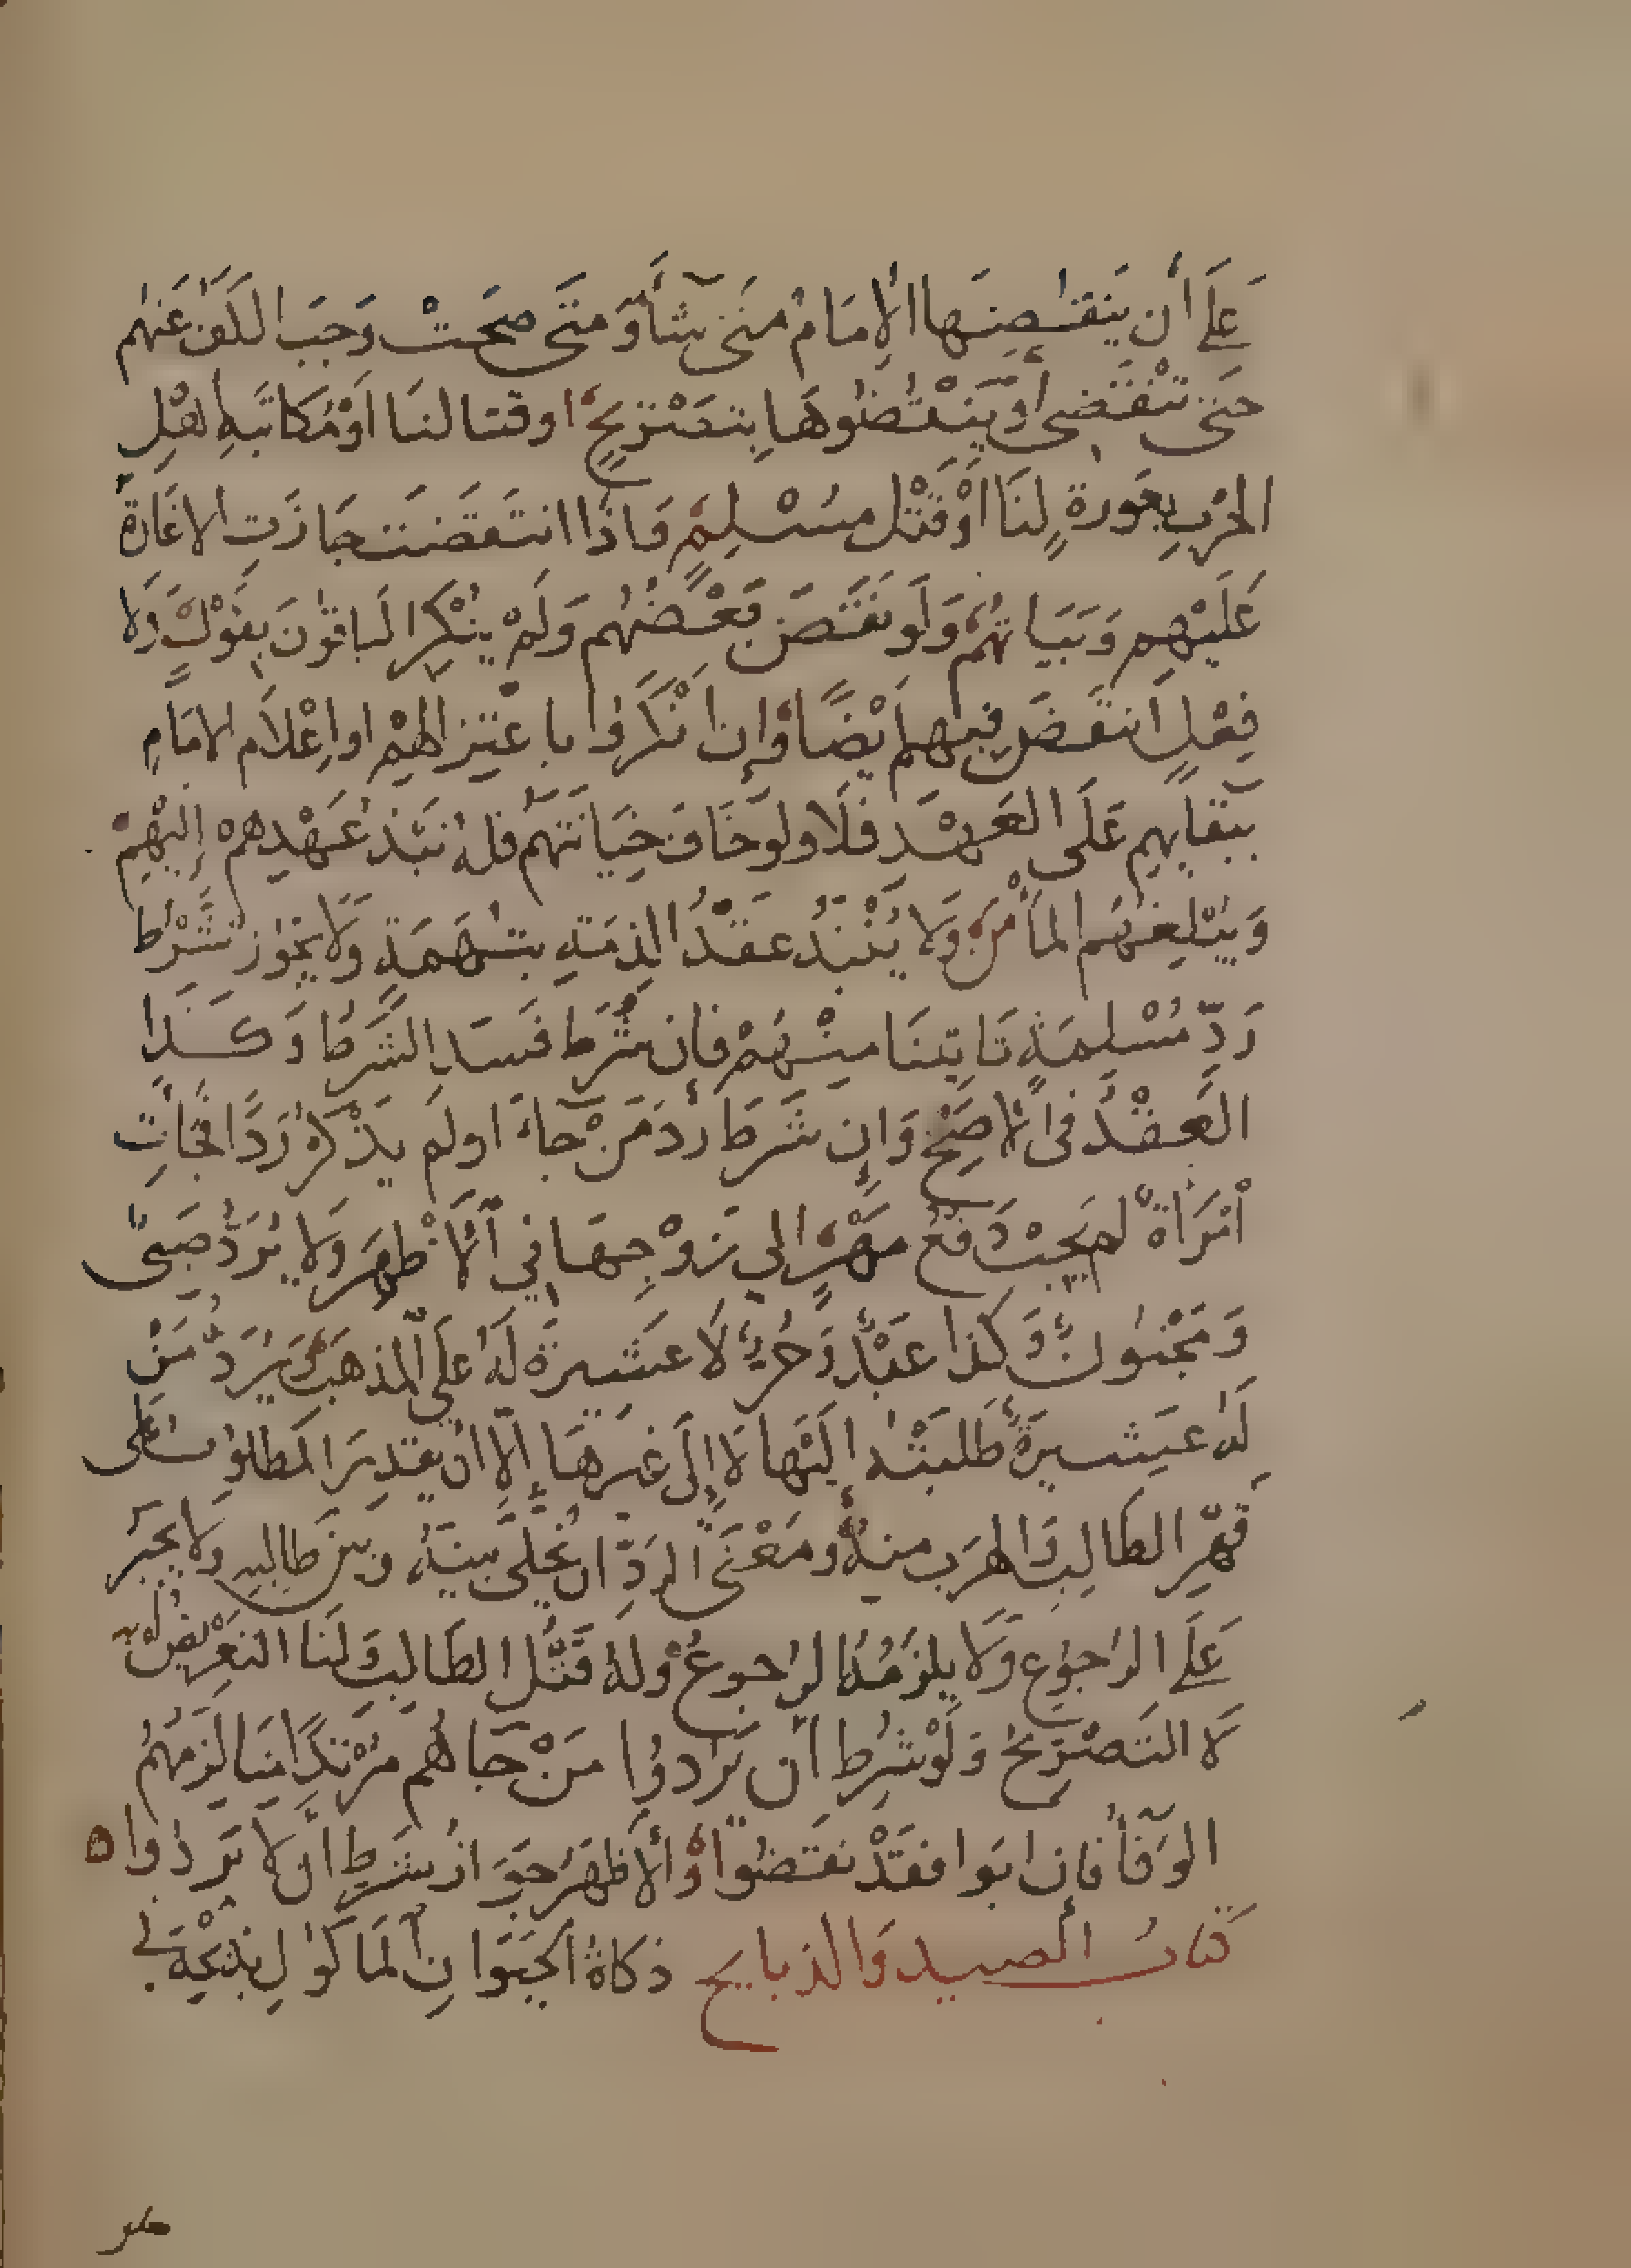 عَلَى أن يَنقُضَهَا الإمَامُ مَتَى شآءَ وَمتَى صَحَّتْ وَجَبَ الكَفُّ عَنْهُم
حَتى تنْقَضى أوْ يَنْقُضُوهَا بِتَصْرِيحٍ اوقتالنَا اَوْ مُكَاتَبَةِ اهْلِ
الحَرْبِ بِعَورةٍ لنَا اَوْ قَتْل مُسْلِمٍ وَاذَا انتقَضَت جَازَتِ الاغَارَةُ
عَلَيْهِم وَبَيَاتهُم وَلَو نَقَضَ بَعْضُهُم وَلَمْ يُنْكِرِ البَاقُونَ بِقَوْلٍ وَلا
فِعْلٍ انتقَضَ فِيهِم اَيْضًا وَإن اَنْكَرُوا باعْتِزَالهِمْ اواِعْلاَم الامَامِ
بِبَقآيِهِم عَلَى العَهْدِ فلَا ولَو خَافَ خِيَانَتَهُم فلهُ نَبْذ عَهْدِهم إلَيْهِمْ
وَيُبْلِغُهُم المأْمَنَ وَلَا يُنْبَذُ عَقْدُ الذِمَةِ بتُهَمَةٍ وَلَا يَجُوز شَرْط
رَدِّ مُسْلِمَةٍ تَاتِينَا مِنْهُمْ فان شُرِط فَسَد الشَّرطُ وَكَذَا
العَقْدُ فى الاَصَحِّ وَإن شَرَطَ رد مَنْ جآءَ اولم يذْكرْ رَدًّا فجَأَت
امْرَاةٌ لم يَجِبْ دَفعُ مَهْرٍ الى زَوْجِهَا فِي الاَظْهَرِ وَلا يُرَدُّ صَبيٌّ
وَمَجْنُونٌ وَكذا عَبْدٌ وَحُرٌّ لَا عَشِيرة لَهُ عَلَى المذهَبِ وَيُرَدُّ مَنْ
لَهُ عَشِيرَةٌ طَلبَتْهُ اِلَيْهَا لَا اِلَى غيرِهَا إلّا ان يقدِرَ المَطلُوبُ عَلَى
قَهْرِ الطَالِبِ وَالهَرَب منهُ وَمَعْنَى الرَدِّ ان يُخَلَّى بينَهُ وبين طالبِهِ ولا يُجْبَر
عَلَى الرُجوعِ وَلَا يلزَمُهُ الرُجوعُ ولهُ قَتْلُ الطَالِبِ وَلنَا التعْرِيضُ لَهُ بهِ
لَا التَصْرِيحُ وَلَوْ شُرِط أن يَرُدوُا مَنْ جآهُم مُرْتدًا مِنَا لَزِمَهُمُ
الوَفآءُ فان ابَوا فقَدْ نقَضُوا وَالاَظهَرُ جَوَازُ شَرْطِ اَن لَا يَرُدُوا ه
كتابُ الصيد وَالذبايح ذكاةُ الحَيَوَانِ المَاكُول بِذبْحِهِ في